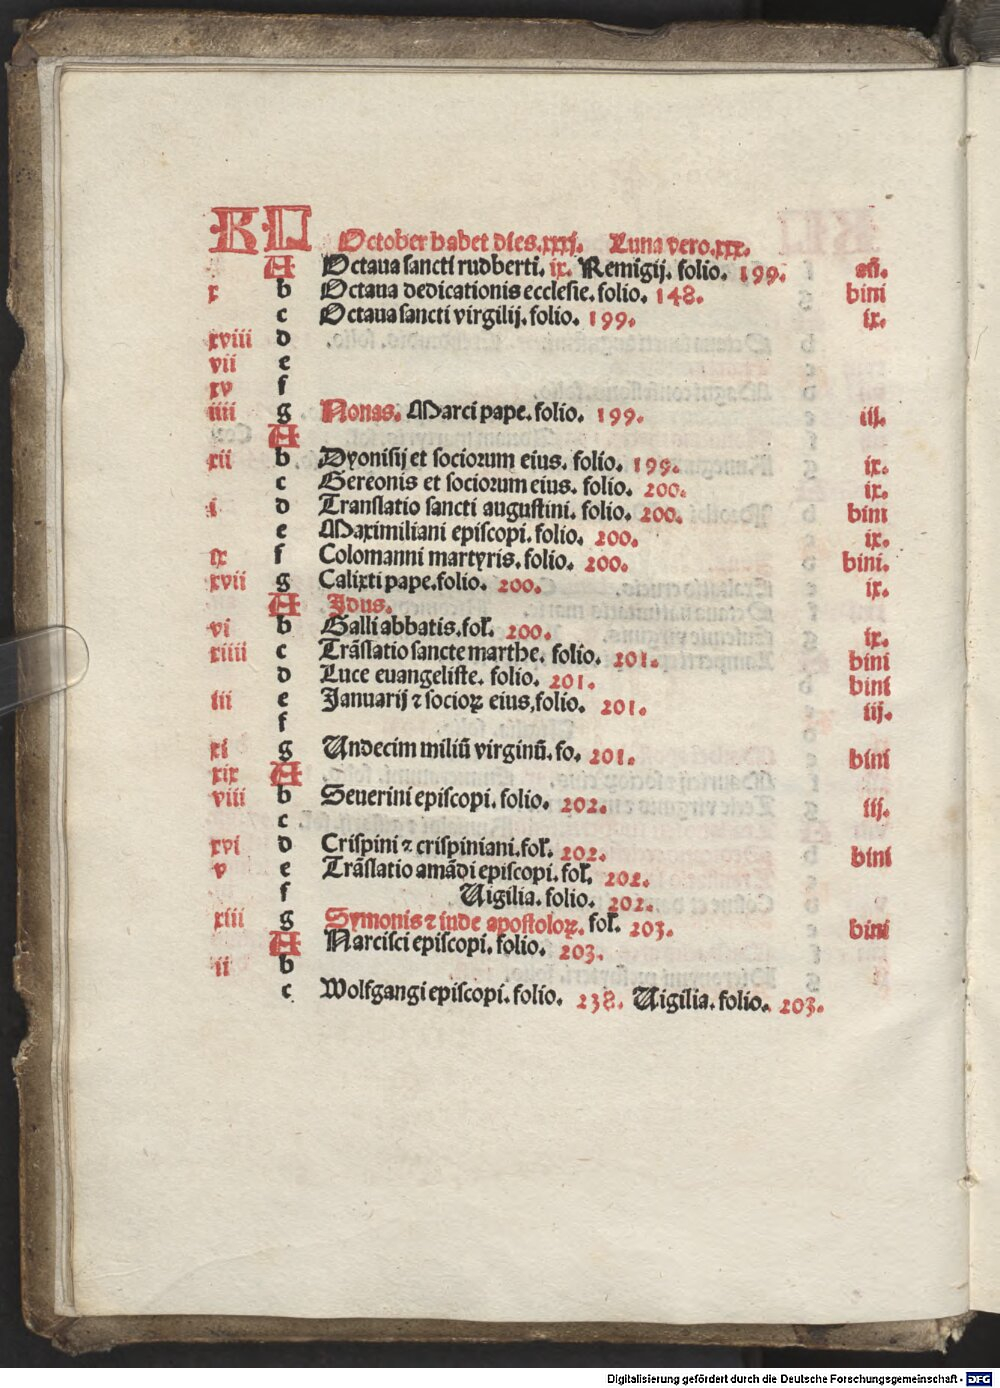 KL October habet dies.xxxj. Luna vero.xxx.
A Octaua sancti rudberti. ix. Remigij. folio. 199. añ.
x b Octaua dedicationis ecclesie. folio. 148. bini
c Octaua sancti virgilij. folio. 199. ix.
xviii d
vii e
xv f
iiii g Nonas. Marci pape. folio. 199. iij.
A
xii b Dyonisij et sociorum eius. folio. 199. ix.
c Gereonis et sociorum eius. folio. 200. ix.
i d Translatio sancti augustini. folio. 200. bini
e Maximiliani episcopi. folio. 200. ix.
ix f Colomanni martyris. folio. 200. bini.
xvii g Calixti pape. folio. 200. ix.
A Idus.
vi b Galli abbatis. fol. 200. ix.
xiiii c Trãslatio sancte marthe. folio. 201. bini
d Luce euangeliste. folio. 201. bini
iii e Januarij ⁊ socioꝝ eius, folio. 201. iij.
f
xi g Undecim miliũ virginũ. fo. 201. bini
xix A
viii b Seuerini episcopi. folio. 202. iij.
c
xvi d Crispini ⁊ crispiniani. fol. 202. bini
v e Trãslatio amãdi episcopi. fol. 202.
f Uigilia. folio. 202.
xiii g Symonis ⁊ iude apostoloꝝ. fol. 203. bini
A Narcisci episcopi. folio. 203.
ii b
c Wolfgangi episcopi. folio. 238. Uigilia. folio. 203.
Digitalisierung gefördert durch die Deutsche Forschungsgemeinschaft - DFG